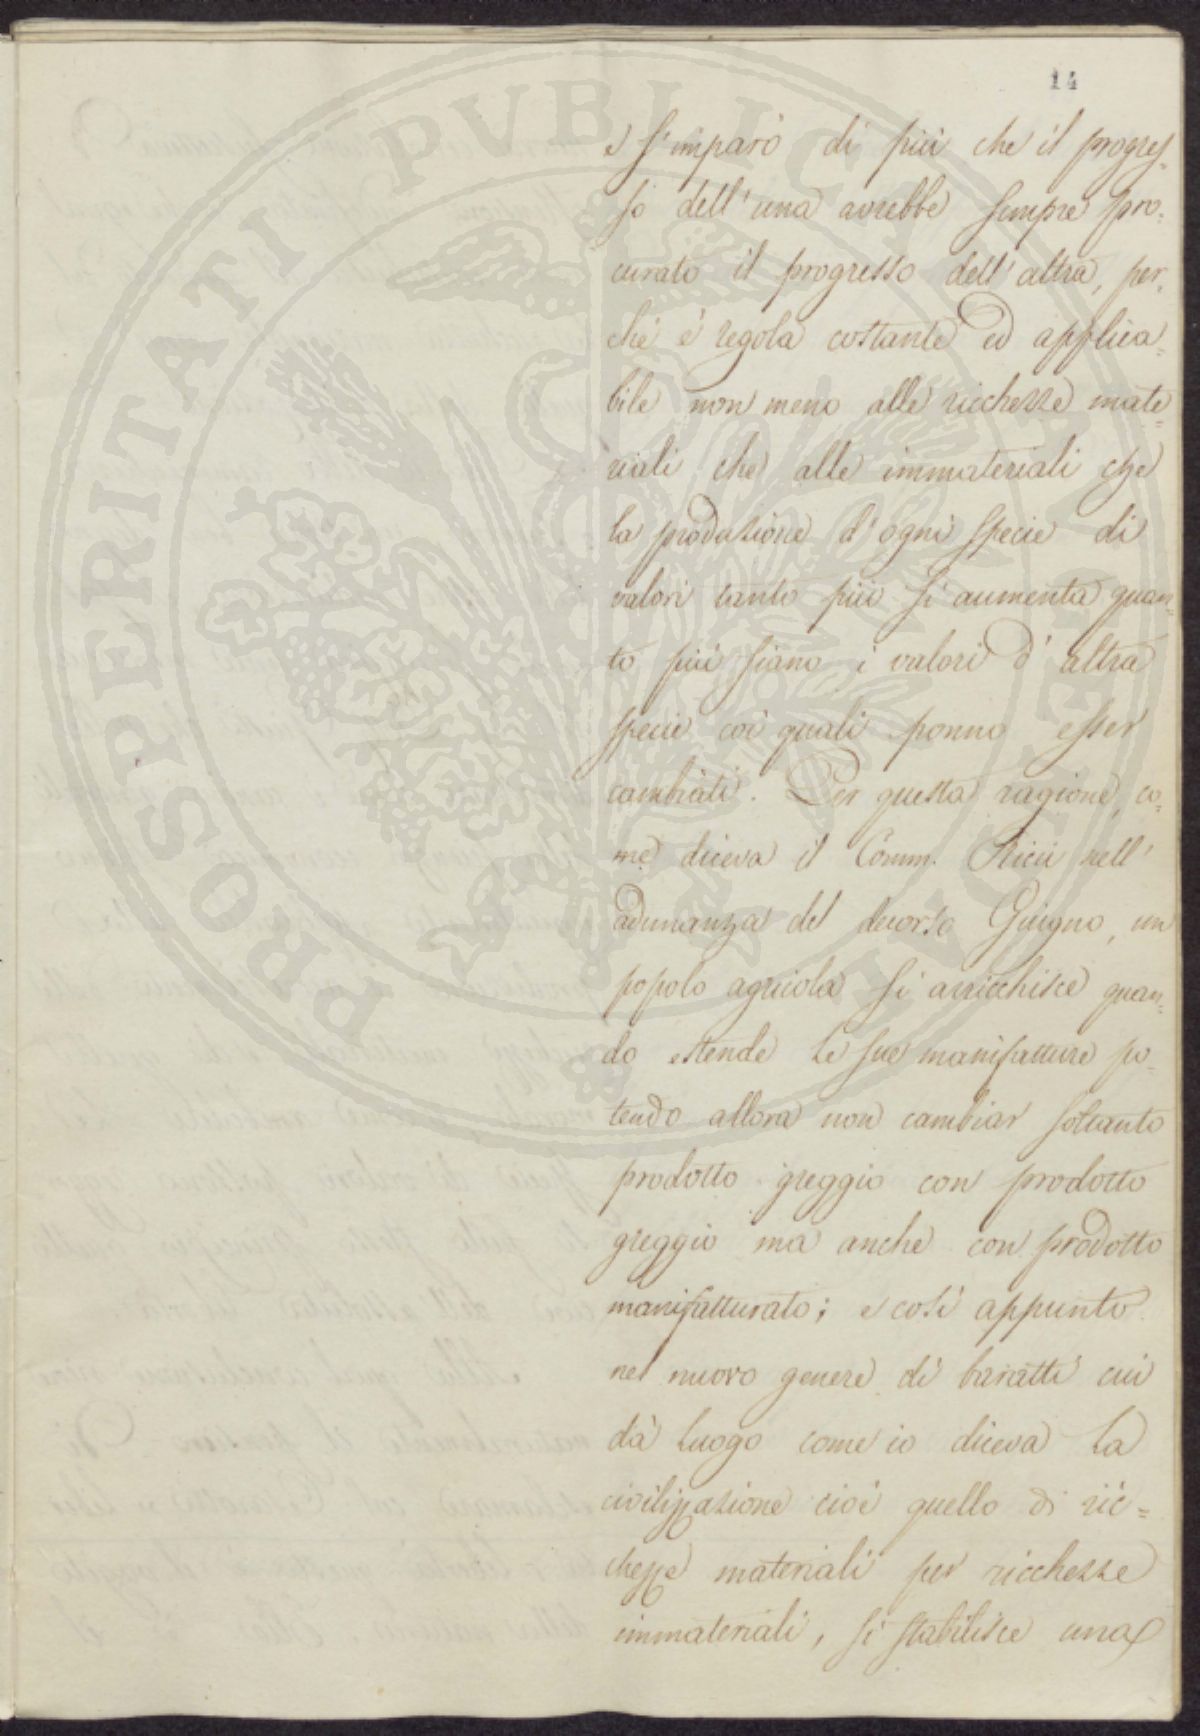 14
e s'imparò di più che il progres=
so dell'una avrebbe sempre pro=
curato il progresso dell'altra, per=
chè è regola costante ed applica=
bile non meno alle ricchezze mate=
riali che alle immateriali che
la produzione d'ogni specie di
valori tanto più si aumenta quan=
to più siano i valori d'altra
specie coi quali ponno esser
cambiati. Per questa ragione, co=
me diceva il Comm. Ricci nell'
adunanza del decorso Giugno, un
popolo agricola si arricchisce quan=
do estende le sue manifatture po=
tendo allora non cambiar soltanto
prodotto greggio con prodotto
greggio ma anche con prodotto
manifatturato; e così appunto
nel nuovo genere di baratti cui
dà luogo come io diceva la
civilizzazione cioè quello di ric=
chezze materiali per ricchezze
immateriali, si stabilisce una
PROSPERITATI PVBLICAE AVGENDAE